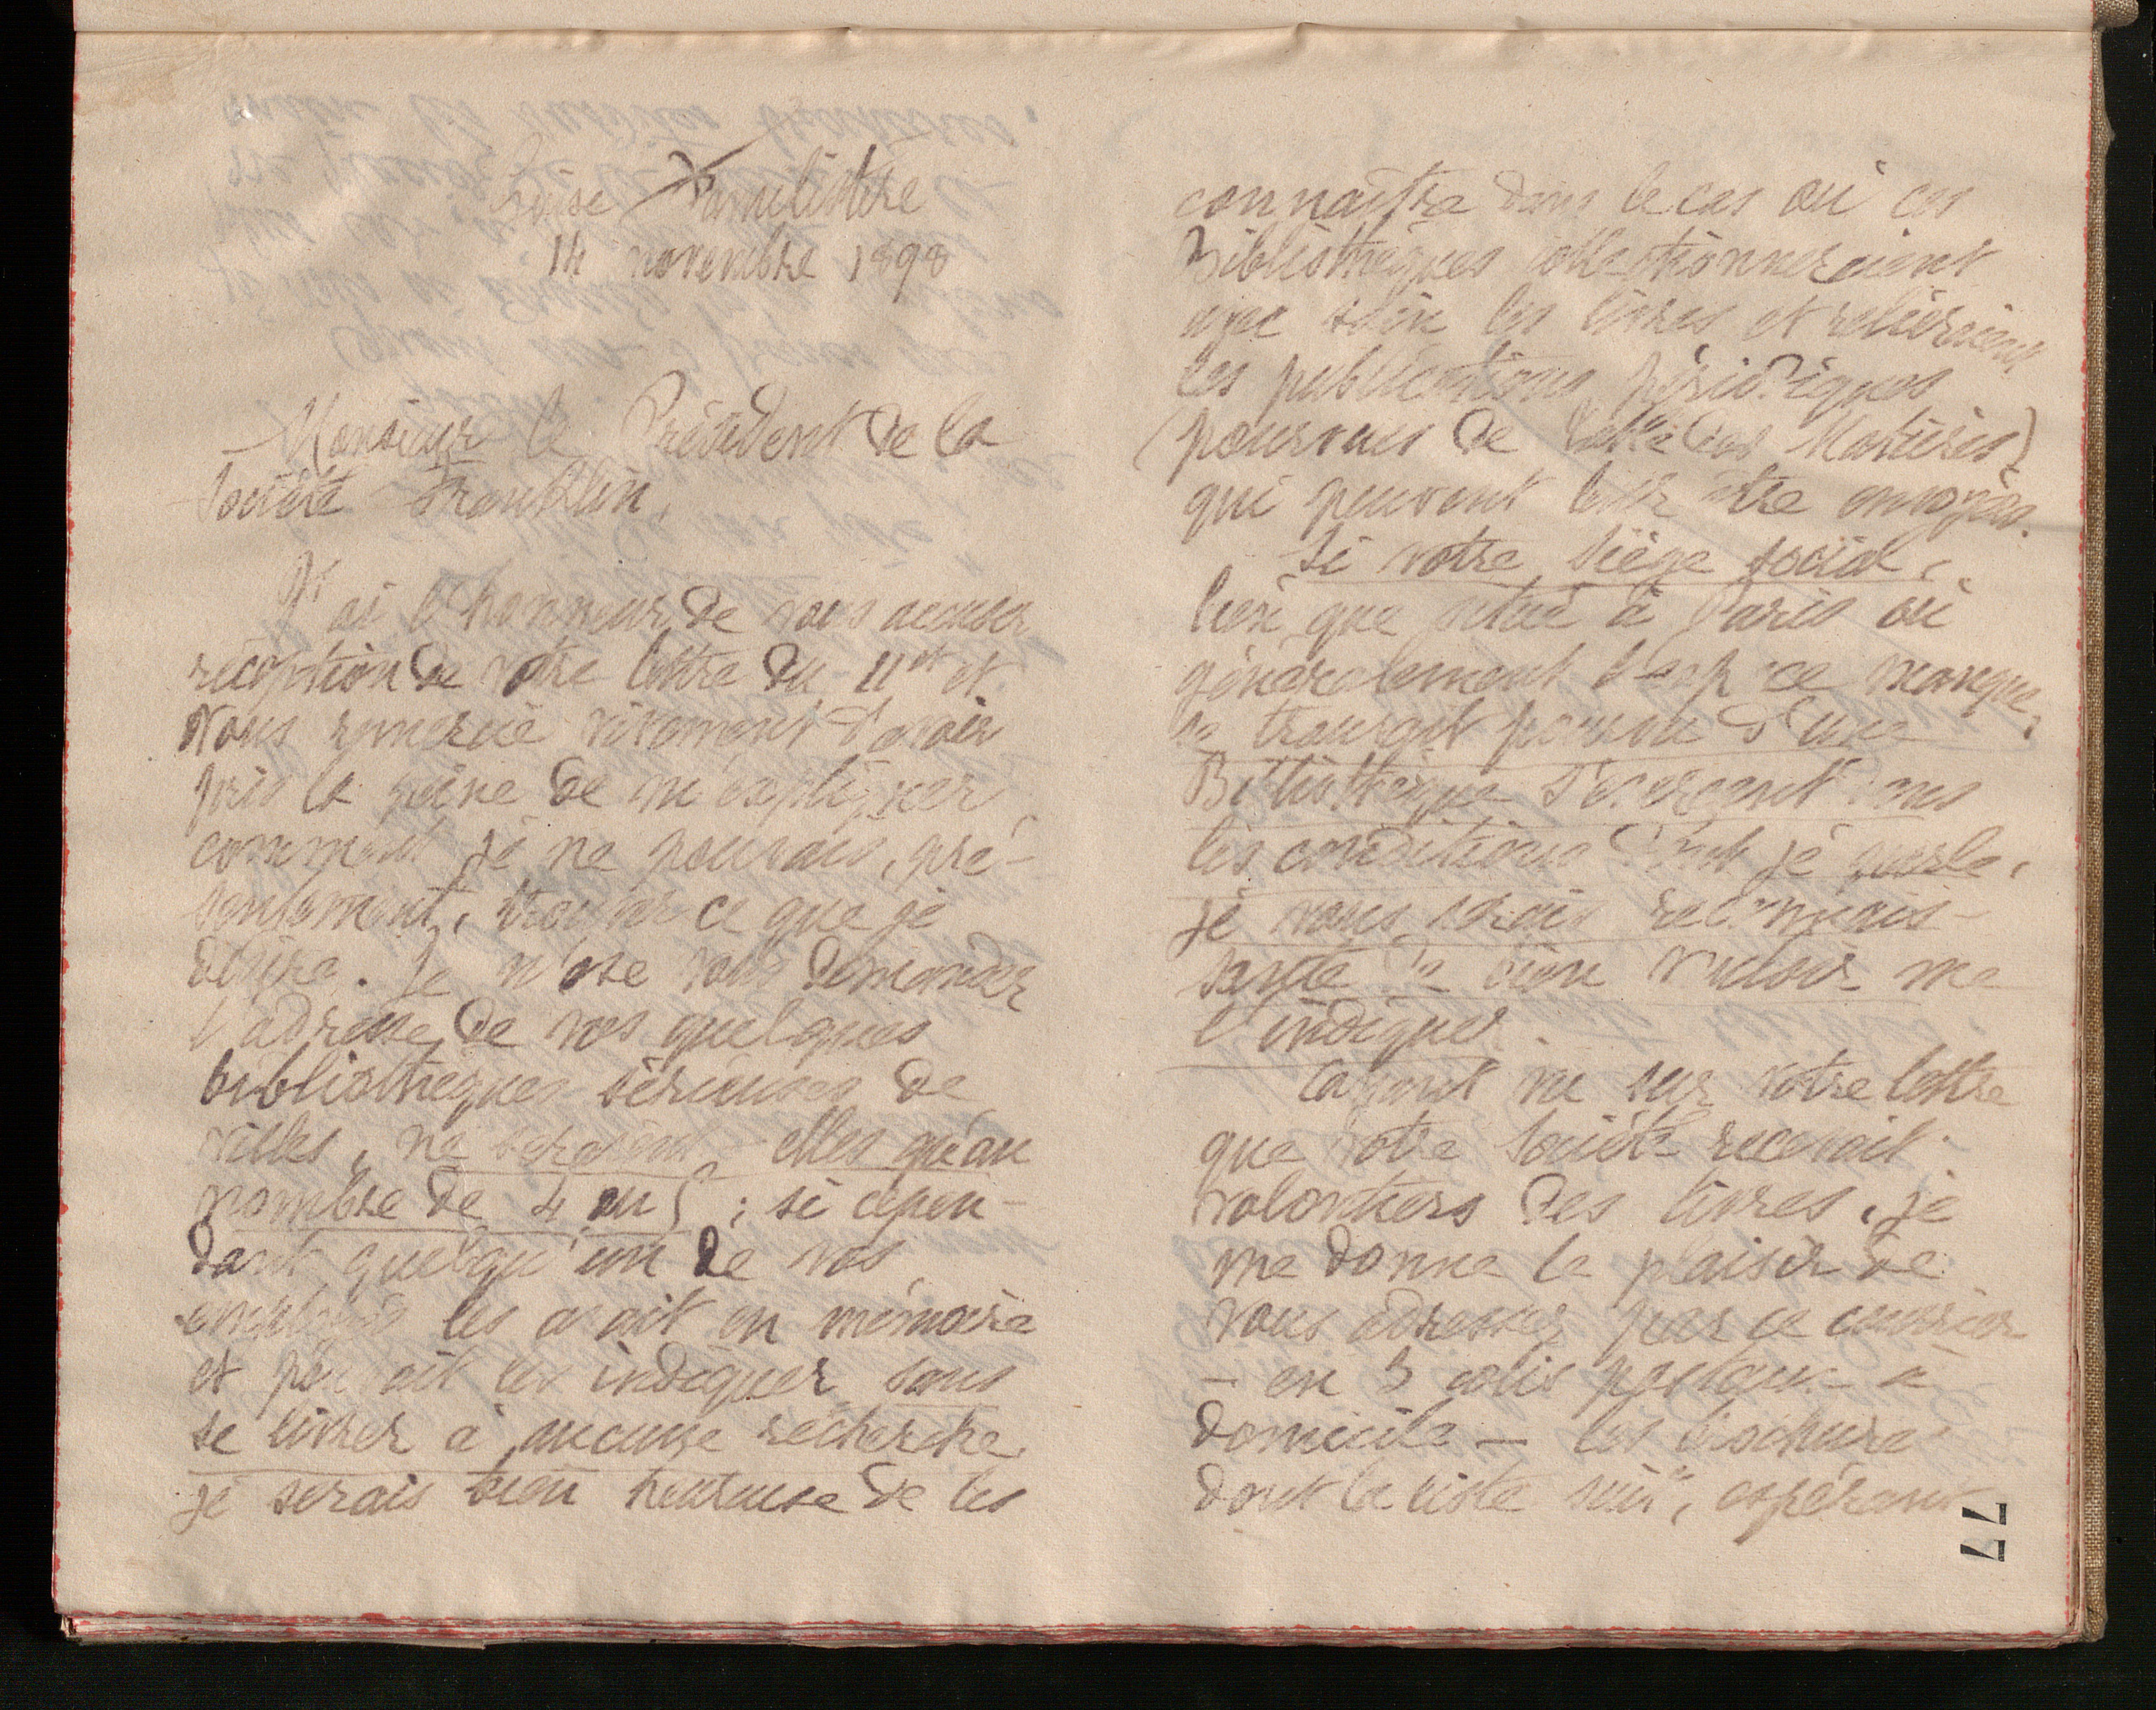 Guise Familistère
14 novembre 1898
Monsieur le Président de la
Société Franklin,
J'ai l'honneur de vous accuser
réception de votre lettre du 11 ct et
vous remercie vivement d'avoir
pris la peine de m'expliquer
comment je ne pouvais, pré-
sentement, trouver ce que je
désire. Je n'ose vous demander
l'adresse de vos quelques
bibliothèques sérieuses de
villes, ne seraient-elles qu'au
nombre de 4 ou 5 ; si cepen-
dant quelqu'un de vos
employés les avait en mémoire
et pouvait les indiquer sans
se livrer à aucune recherche
je serais bien heureuse de les
connaître dans le cas où ces
Bibliothèques collectionneraient
avec soin les livres et relieraient
les publications périodiques
(pourvues de Table des Matières)
qui peuvent leur être envoyées.
Si votre siège social,
bien que situé à Paris où
généralement l'espace manque,
se trouvait pourvu d'une
Bibliothèque s'exerçant dans
les conditions dont je parle,
je vous serais reconnais-
sante de bien vouloir me
l'indiquer.
Ayant vu sur votre lettre
que votre Société recevait
volontiers des livres, je
me donne le plaisir de
vous adresser par ce courrier
- en 3 colis postaux à
domicile - les brochures
dont la liste suit, espérant
77